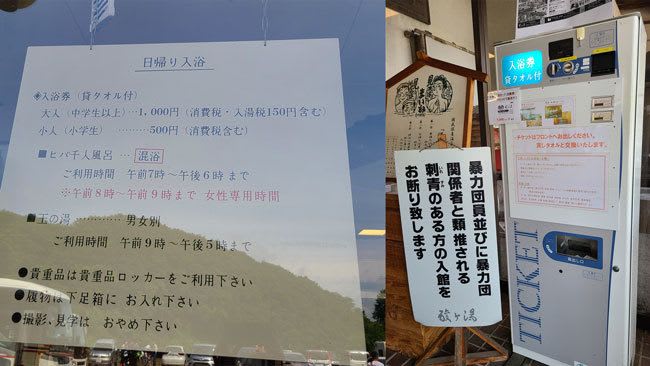 日帰り入浴
◈入浴券（貸タオル付）
大人（中学生以上）…1,000円（消費税・入湯税150円含む）
小人（小学生）………500円（消費税含む）
■ヒバ千人風呂…混浴
ご利用時間 午前7時～午後6時まで
※午前8時～午前9時まで 女性専用時間
■玉の湯…………男女別
ご利用時間 午前9時～午後5時まで
●貴重品は貴重品ロッカーをご利用下さい
●履物は下足箱に お入れ下さい
●撮影、見学は おやめ下さい
暴力団員並びに暴力団
関係者と類推される
刺青のある方の入館を
お断り致します
酸ヶ湯
入浴券
貸タオル付
チケットはフロントへお出しください。
貸しタオルと交換いたします。
TICKET